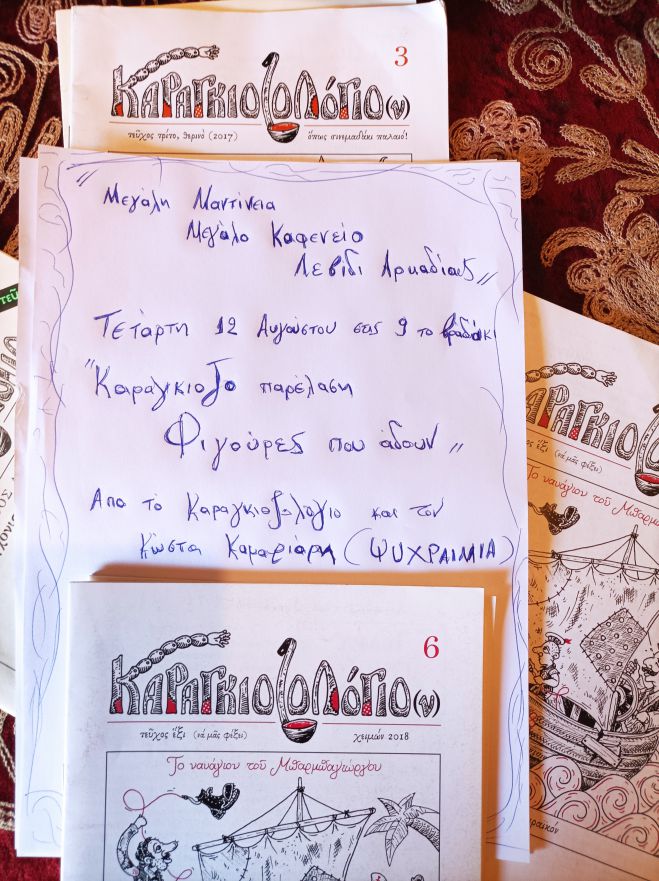 3
ΚΑΡΑΓΚΙΟΖΟΛΟΓΙΟ(ν)
τεῦχος τρίτο, θερινὸ (2017)
ὅπως σινεμαδάκι παλαιό!
"Μεγάλη Μαντίνεια
Μεγάλο Καφενείο
Λεβίδι Αρκαδίας"
Τετάρτη 12 Αυγούστου στις 9 το βραδάκι
"Καραγκιοζο παρέλαση
Φιγούρες που άδουν"
Απο το Καραγκιοζολόγιο και τον
Κώστα Καμαριάρη (ΨΥΧΡΑΙΜΙΑ)
6
ΚΑΡΑΓΚΙΟΖΟΛΟΓΙΟ(ν)
τεῦχος ἕξι (νά μᾶς φέξει)
χειμών 2018
Τὸ ναυάγιον τοῦ Μπαρμπαγιώργου
ΑΡΑΓΚΙΟ
ἕξι (νά μᾶς φέξει)
Τὸ ναυάγιον τοῦ Μπαρμ
τεῦ